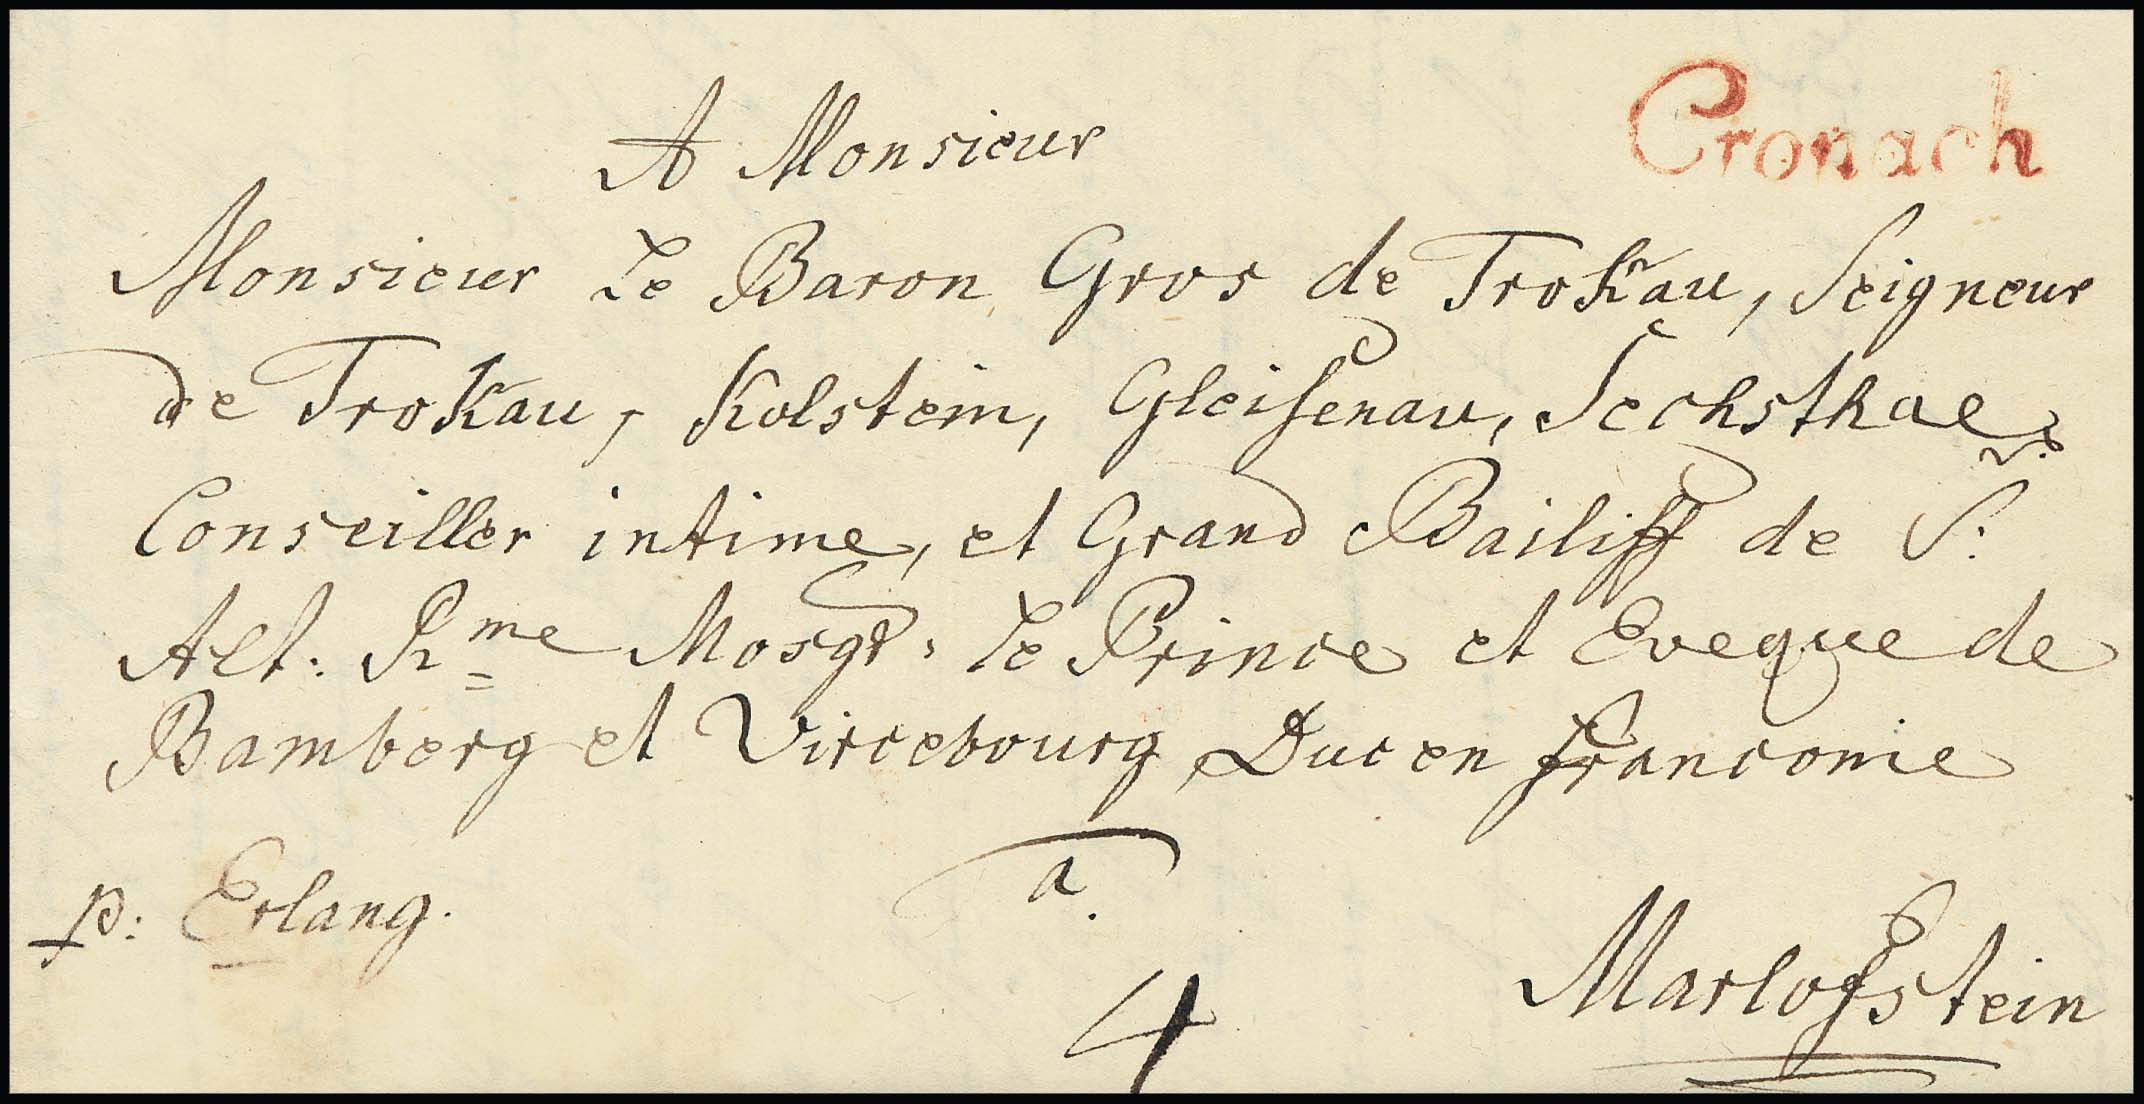 Cronach
A Monsieur
Monsieur le Baron Gros de Trokau, Seigneur
de Trokau, Kolstein, Gleisenau, Sechsthal
Conseiller intime, et Grand Bailiff de S:
Alt: Rme Mosgr. le Prince et Eveque de
Bamberg et Vircebourg, Duc en Franconie
a.
p: Erlang.
Marlofstein
4